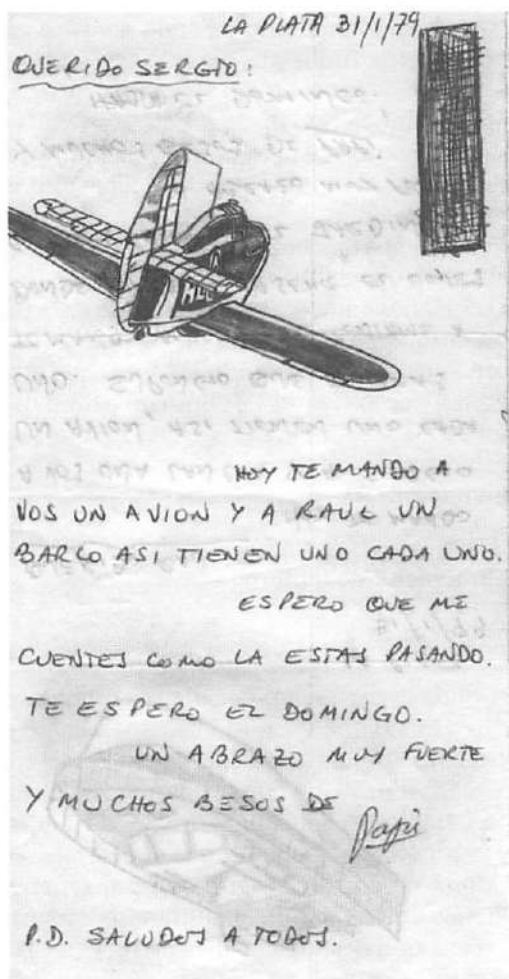 LA PLATA 31/1/79
QUERIDO SERGIO:
HOY TE MANDO A
VOS UN AVION Y A RAUL UN
BARCO ASI TIENEN UNO CADA UNO.
ESPERO QUE ME
CUENTES COMO LA ESTAS PASANDO.
TE ESPERO EL DOMINGO.
UN ABRAZO MUY FUERTE
Y MUCHOS BESOS DE
Papi
P.D. SALUDOS A TODOS.